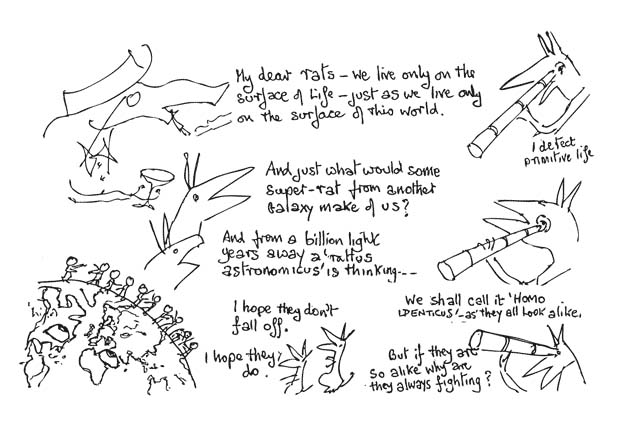 My dear rats – we live only on the
surface of life – just as we live only
on the surface of this world.
I detect
primitive life
And just what would some
super-rat from another
Galaxy make of us?
And from a billion light
years away a 'rattus
astronomicus' is thinking---
We shall call it 'HOMO
IDENTICUS' – as they all look alike.
I hope they don't
fall off.
I hope they
do.
But if they are
so alike why are
they always fighting?